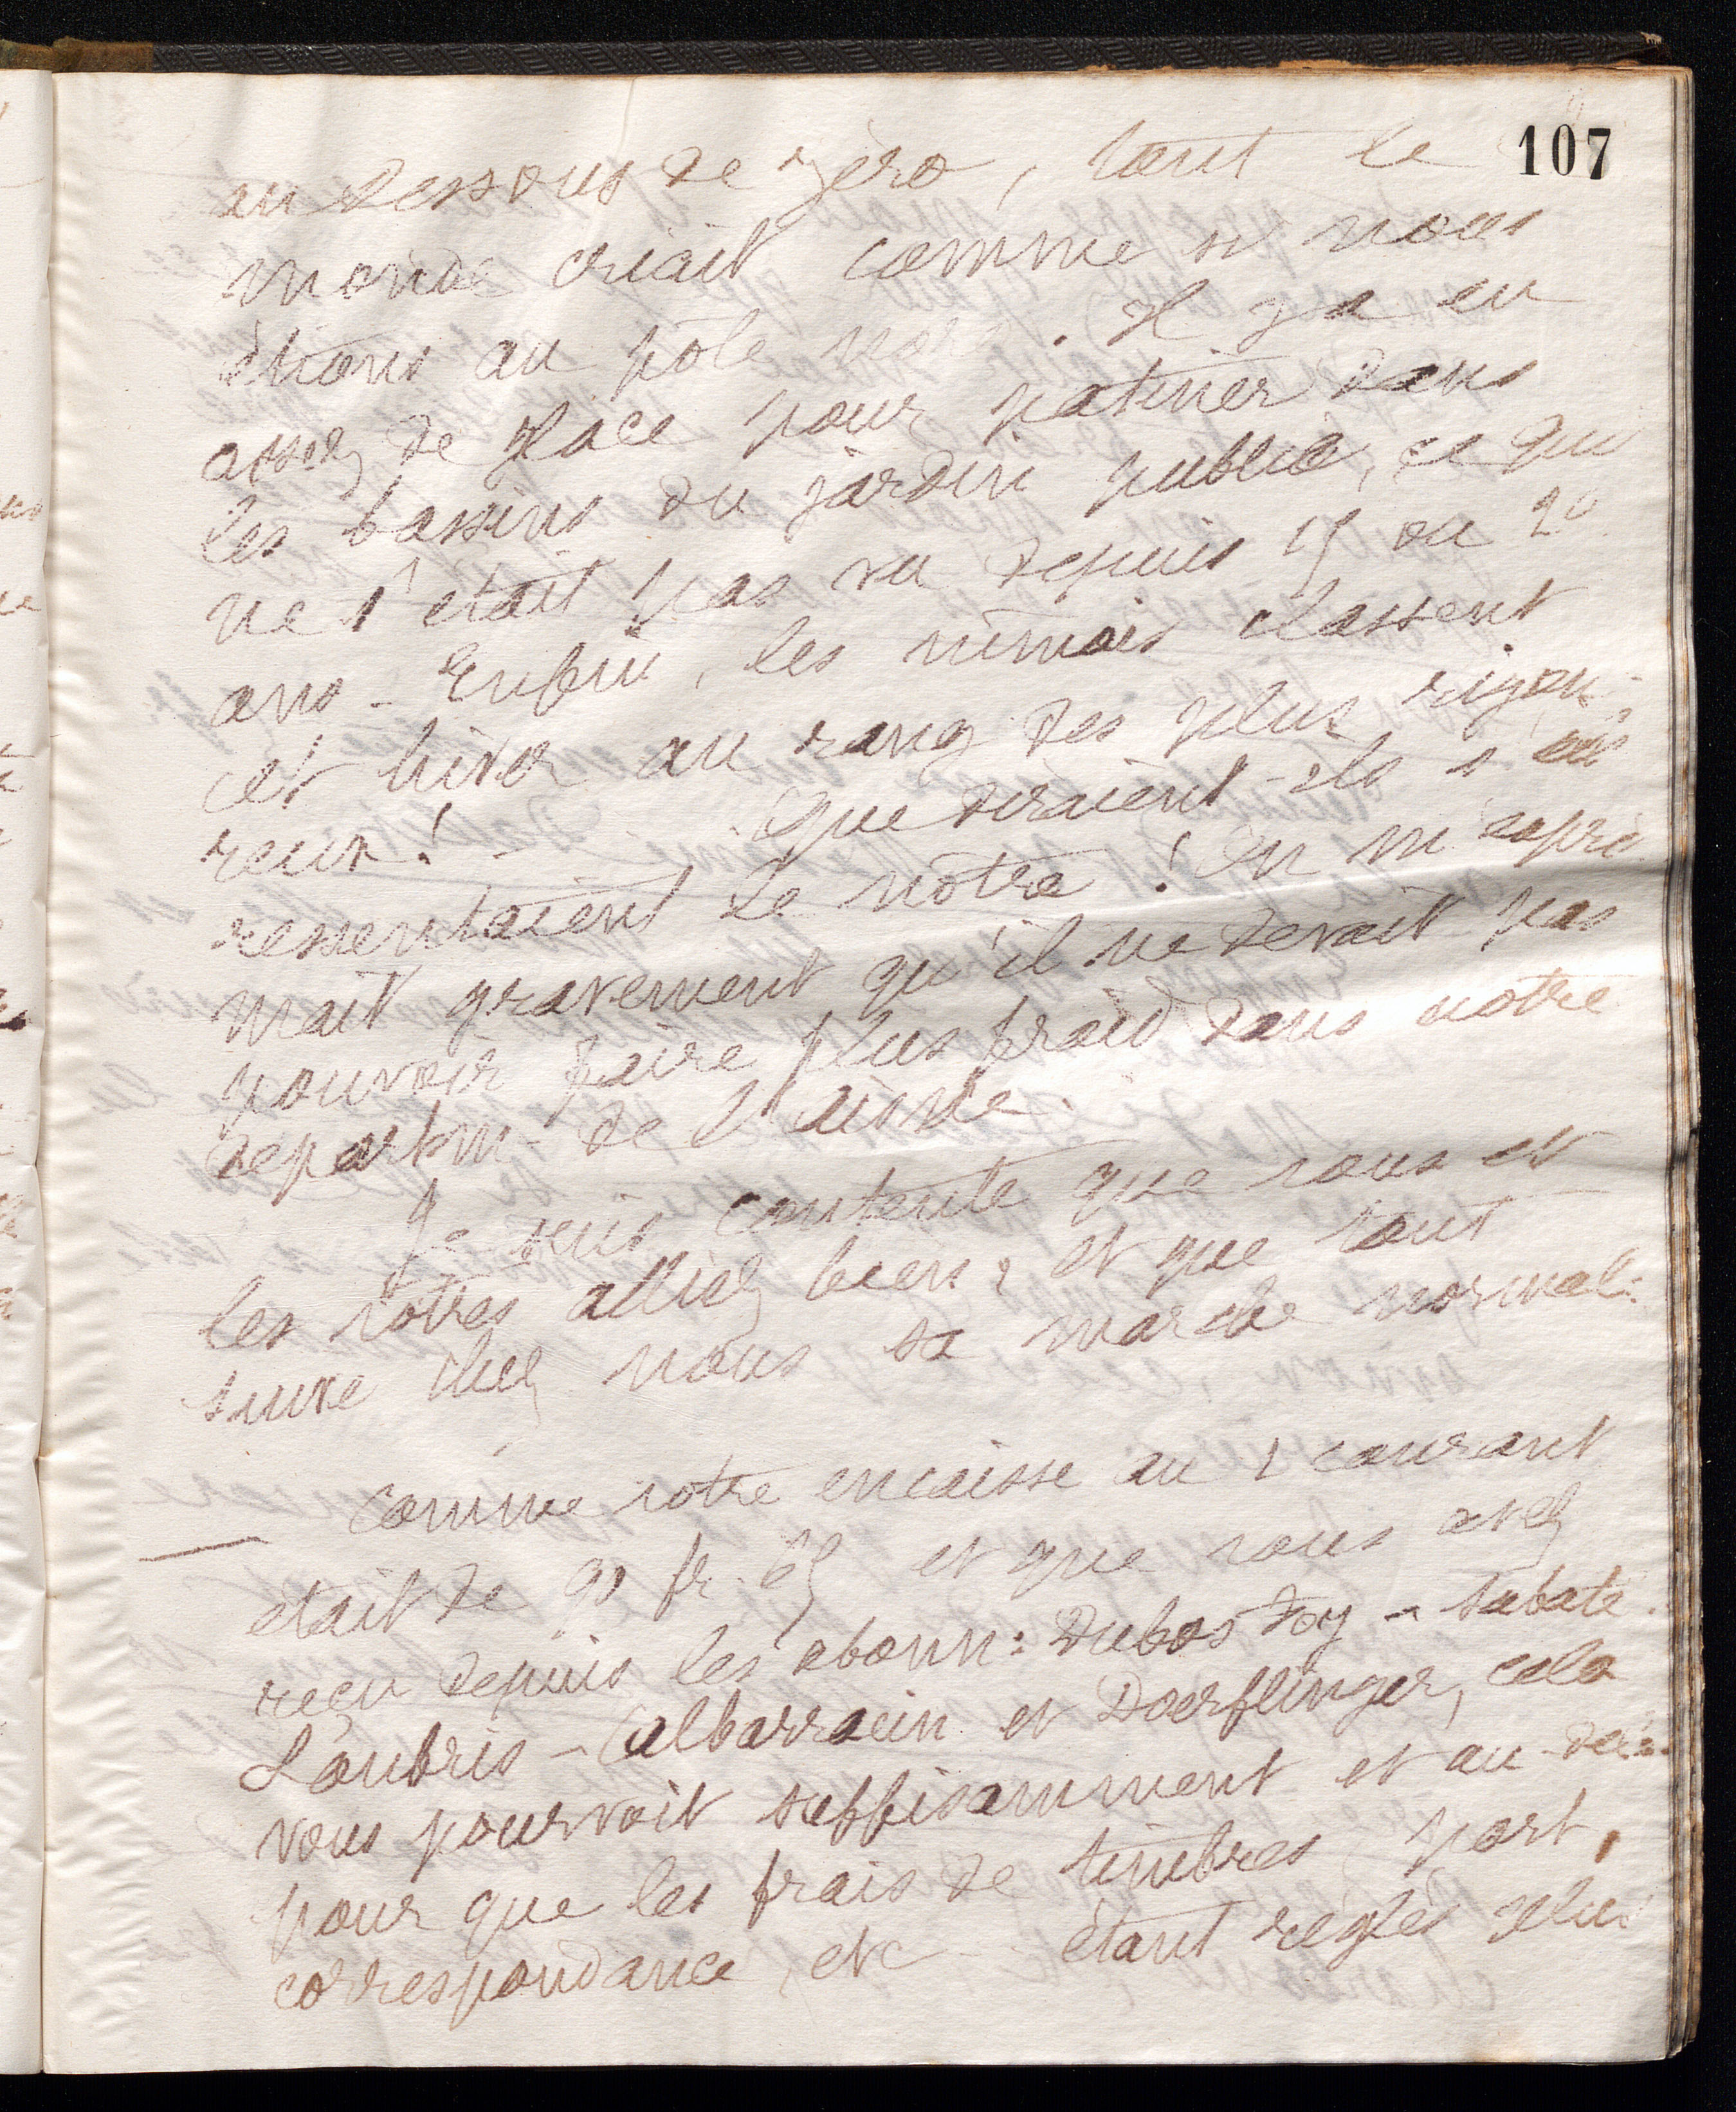 107
au dessous de zéro, tout le
monde criait comme si nous
étions au pôle nord. Il y a eu
assez de glace pour patiner dans
les bassins du jardin public, ce qui
ne s'était pas vu depuis 15 ou 20
ans - Enfin, les nimois classent
cet hiver au rang des plus rigou-
reux! - Que diraient-ils s'ils
ressentaient le nôtre! On m'expri-
mait gravement qu'il ne devait pas
pouvoir faire plus froid dans notre
départem- de l'aisne.
Je suis contente que vous et
les vôtres alliez bien, et que tout
suive chez nous sa marche normal:
— Comme votre encaisse au 1 courant
était de 90 fr. 65 et que vous avez
reçu depuis les abonn: Dubos Foy - Sabaté
Loubris - Calbarracin et Doerflinger, cela
vous pourvoit suffisamment et au-de:
pour que les frais de timbres, port,
correspondance, etc étant réglés plus